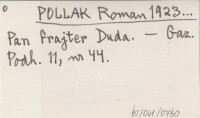 POLLAK Roman 1923...
Pan frajter Duda. — Gaz.
Podh. 11, nr 44.